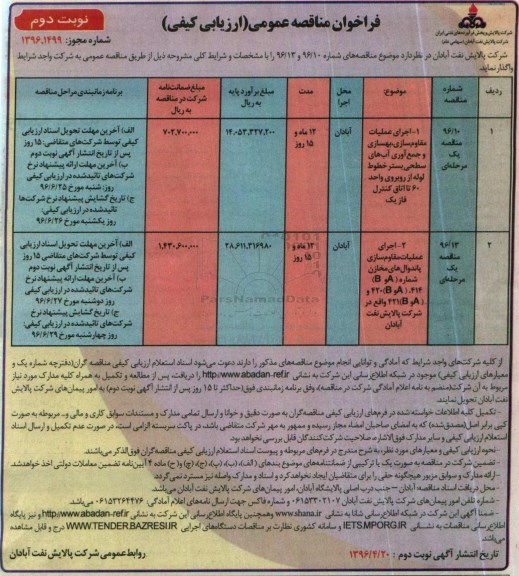 نوبت دوم
فراخوان مناقصه عمومی(ارزیابی کیفی)
شماره مجوز: ۱۳۹۶.۱۴۹۹
شرکت پالایش نفت آبادان (سهامی عام)
شرکت پالایش نفت آبادان در نظردارد موضوع مناقصه‌های شماره ۹۶/۱۰ و ۹۶/۱۳ را با مشخصات و شرایط کلی مشروحه ذیل از طریق مناقصه عمومی به شرکت واجد شرایط
واگذار نماید.
ردیف
شماره مناقصه
موضوع:
محل اجرا
مدت
مبلغ برآورد پایه به ریال
مبلغ ضمانتنامه شرکت در مناقصه به ریال
برنامه زمانبندی مراحل مناقصه
۱
۹۶/۱۰
مناقصه
یک
مرحله‌ای
۱-اجرای عملیات
مقاوم‌سازی،بهسازی
و جمع‌آوری آب‌های
سطحی بستر خطوط
لوله از روبروی واحد
۶۰ تا اتاق کنترل
فاز یک
آبادان
۱۲ ماه و
۱۵ روز
۱۴،۰۵۳،۳۳۷،۲۰۰
۷۰۲،۷۰۰،۰۰۰
الف) آخرین مهلت تحویل اسناد ارزیابی
کیفی توسط شرکت‌های متقاضی: ۱۵ روز
پس از تاریخ انتشار آگهی نوبت دوم
ب) آخرین مهلت ارائه پیشنهاد نرخ
شرکت‌های تائیدشده در ارزیابی کیفی:
روز: شنبه مورخ ۹۶/۶/۲۵
ج) تاریخ گشایش پیشنهاد نرخ شرکت‌ها
تائیدشده در ارزیابی کیفی:
روز یکشنبه مورخ ۹۶/۶/۲۶
۲
۹۶/۱۳
مناقصه
یک
مرحله‌ای
۲- اجرای
عملیات مقاوم‌سازی
باندوال‌های مخازن
شماره (A و B)
۴۱۴، (A و B)۴۲۰ و
(A و B)۴۲۱ واقع در
شرکت پالایش نفت
آبادان
آبادان
۱۲ ماه و
۱۵ روز
۲۸،۶۱۱،۳۱۶،۹۸۰
۱،۴۳۰،۶۰۰،۰۰۰
الف) آخرین مهلت تحویل اسناد ارزیابی
کیفی توسط شرکت‌های متقاضی ۱۵ روز
پس از تاریخ انتشار آگهی نوبت دوم
ب) آخرین مهلت ارائه پیشنهاد نرخ
شرکت‌های تائیدشده در ارزیابی کیفی:
روز دوشنبه مورخ ۹۶/۶/۲۷
ج) تاریخ گشایش پیشنهاد نرخ
شرکت‌های تائیدشده در ارزیابی کیفی:
روز چهارشنبه مورخ ۹۶/۶/۲۹
ParsNamadData
از کلیه شرکت‌های واجد شرایط که آمادگی و توانایی انجام موضوع مناقصه‌های مذکور را دارند دعوت می‌شود اسناد استعلام ارزیابی کیفی مناقصه گران(دفترچه شماره یک و
معیارهای ارزیابی کیفی) موجود در شبکه اطلاع‌رسانی این شرکت به نشانی http:\www.abadan-ref.ir را دریافت، پس از مطالعه و تکمیل به همراه کلیه مدارک مورد نیاز
مربوط به آن شرکت(منضم به نامه اعلام آمادگی شرکت در مناقصه)، وفق برنامه زمانبندی فوق(حداکثر تا ۱۵ روز پس از انتشار آگهی نوبت دوم) به امور پیمان‌های شرکت پالایش نفت
آبادان تحویل نمایند.
- تکمیل کلیه اطلاعات خواسته شده در فرم‌های ارزیابی کیفی مناقصه‌گران به صورت دقیق و خوانا و ارسال تمامی مدارک و مستندات سوابق کاری و مالی و... مربوطه به صورت
کپی برابر اصل(مصدق شده) که به امضای صاحبان امضاء مجاز رسیده و ممهور به مهر شرکت متقاضی باشد، در پاکت سربسته الزامی است، در صورت عدم تکمیل و ارسال اسناد
استعلام ارزیابی کیفی و سایر مدارک فوق‌الاشاره صلاحیت شرکت‌کنندگان قابل بررسی نخواهد بود.
- نحوه ارزیابی کیفی و معیارهای مورد نظر، به شرح مندرج در فرم‌های مربوطه و پیوست اسناد استعلام ارزیابی کیفی مناقصه‌گران فوق‌الذکر می‌باشند.
- تضمین شرکت در مناقصه به صورت یک یا ترکیبی از ضمانتنامه‌های موضوع بندهای (الف)، (ب)، (پ)، (ج)، (چ) و (ح) ماده ۴ آیین‌نامه تضمین معاملات دولتی اخذ خواهد شد.
- ارائه مدارک و سوابق مزبور هیچگونه حقی را برای متقاضیان ایجاد نخواهد کرد و اسناد و مدارک واصله نیز مسترد نمی‌گردد.
- محل دریافت اسناد مناقصه: آبادان-جنب درب اصلی پالایشگاه آبادان، امور پیمان‌های شرکت پالایش نفت آبادان می‌باشد.
- شماره تلفن امور پیمان‌های شرکت پالایش نفت آبادان ۰۶۱۵۳۳۰۲۱۰۷ و شماره فاکس جهت ارسال نامه‌های اعلام آمادگی: ۰۶۱۵۳۲۶۴۴۷۶ می‌باشد.
- ضمنا آگهی این شرکت در شبکه اطلاع‌رسانی شانا به نشانی www.shana.ir وهمچنین پایگاه اطلاع‌رسانی این شرکت به نشانی http:\www.abadan-ref.ir و نیز پایگاه
اطلاع‌رسانی مناقصات به نشانی IETS.MPORG.IR و سامانه کشوری نظارت بر مناقصات دستگاه‌های اجرایی WWW.TENDER.BAZRESI.IR درج و قابل مشاهده
می‌باشد.
تاریخ انتشار آگهی نوبت دوم: ۱۳۹۶/۴/۲۰
روابط عمومی شرکت پالایش نفت آبادان